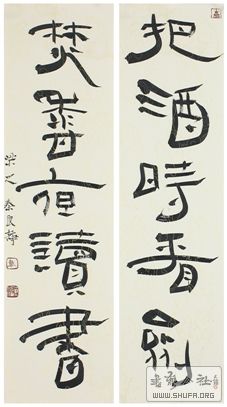 把酒時看劍
焚香夜讀書
梁之
秦良
WWW.SHUFA.ORG